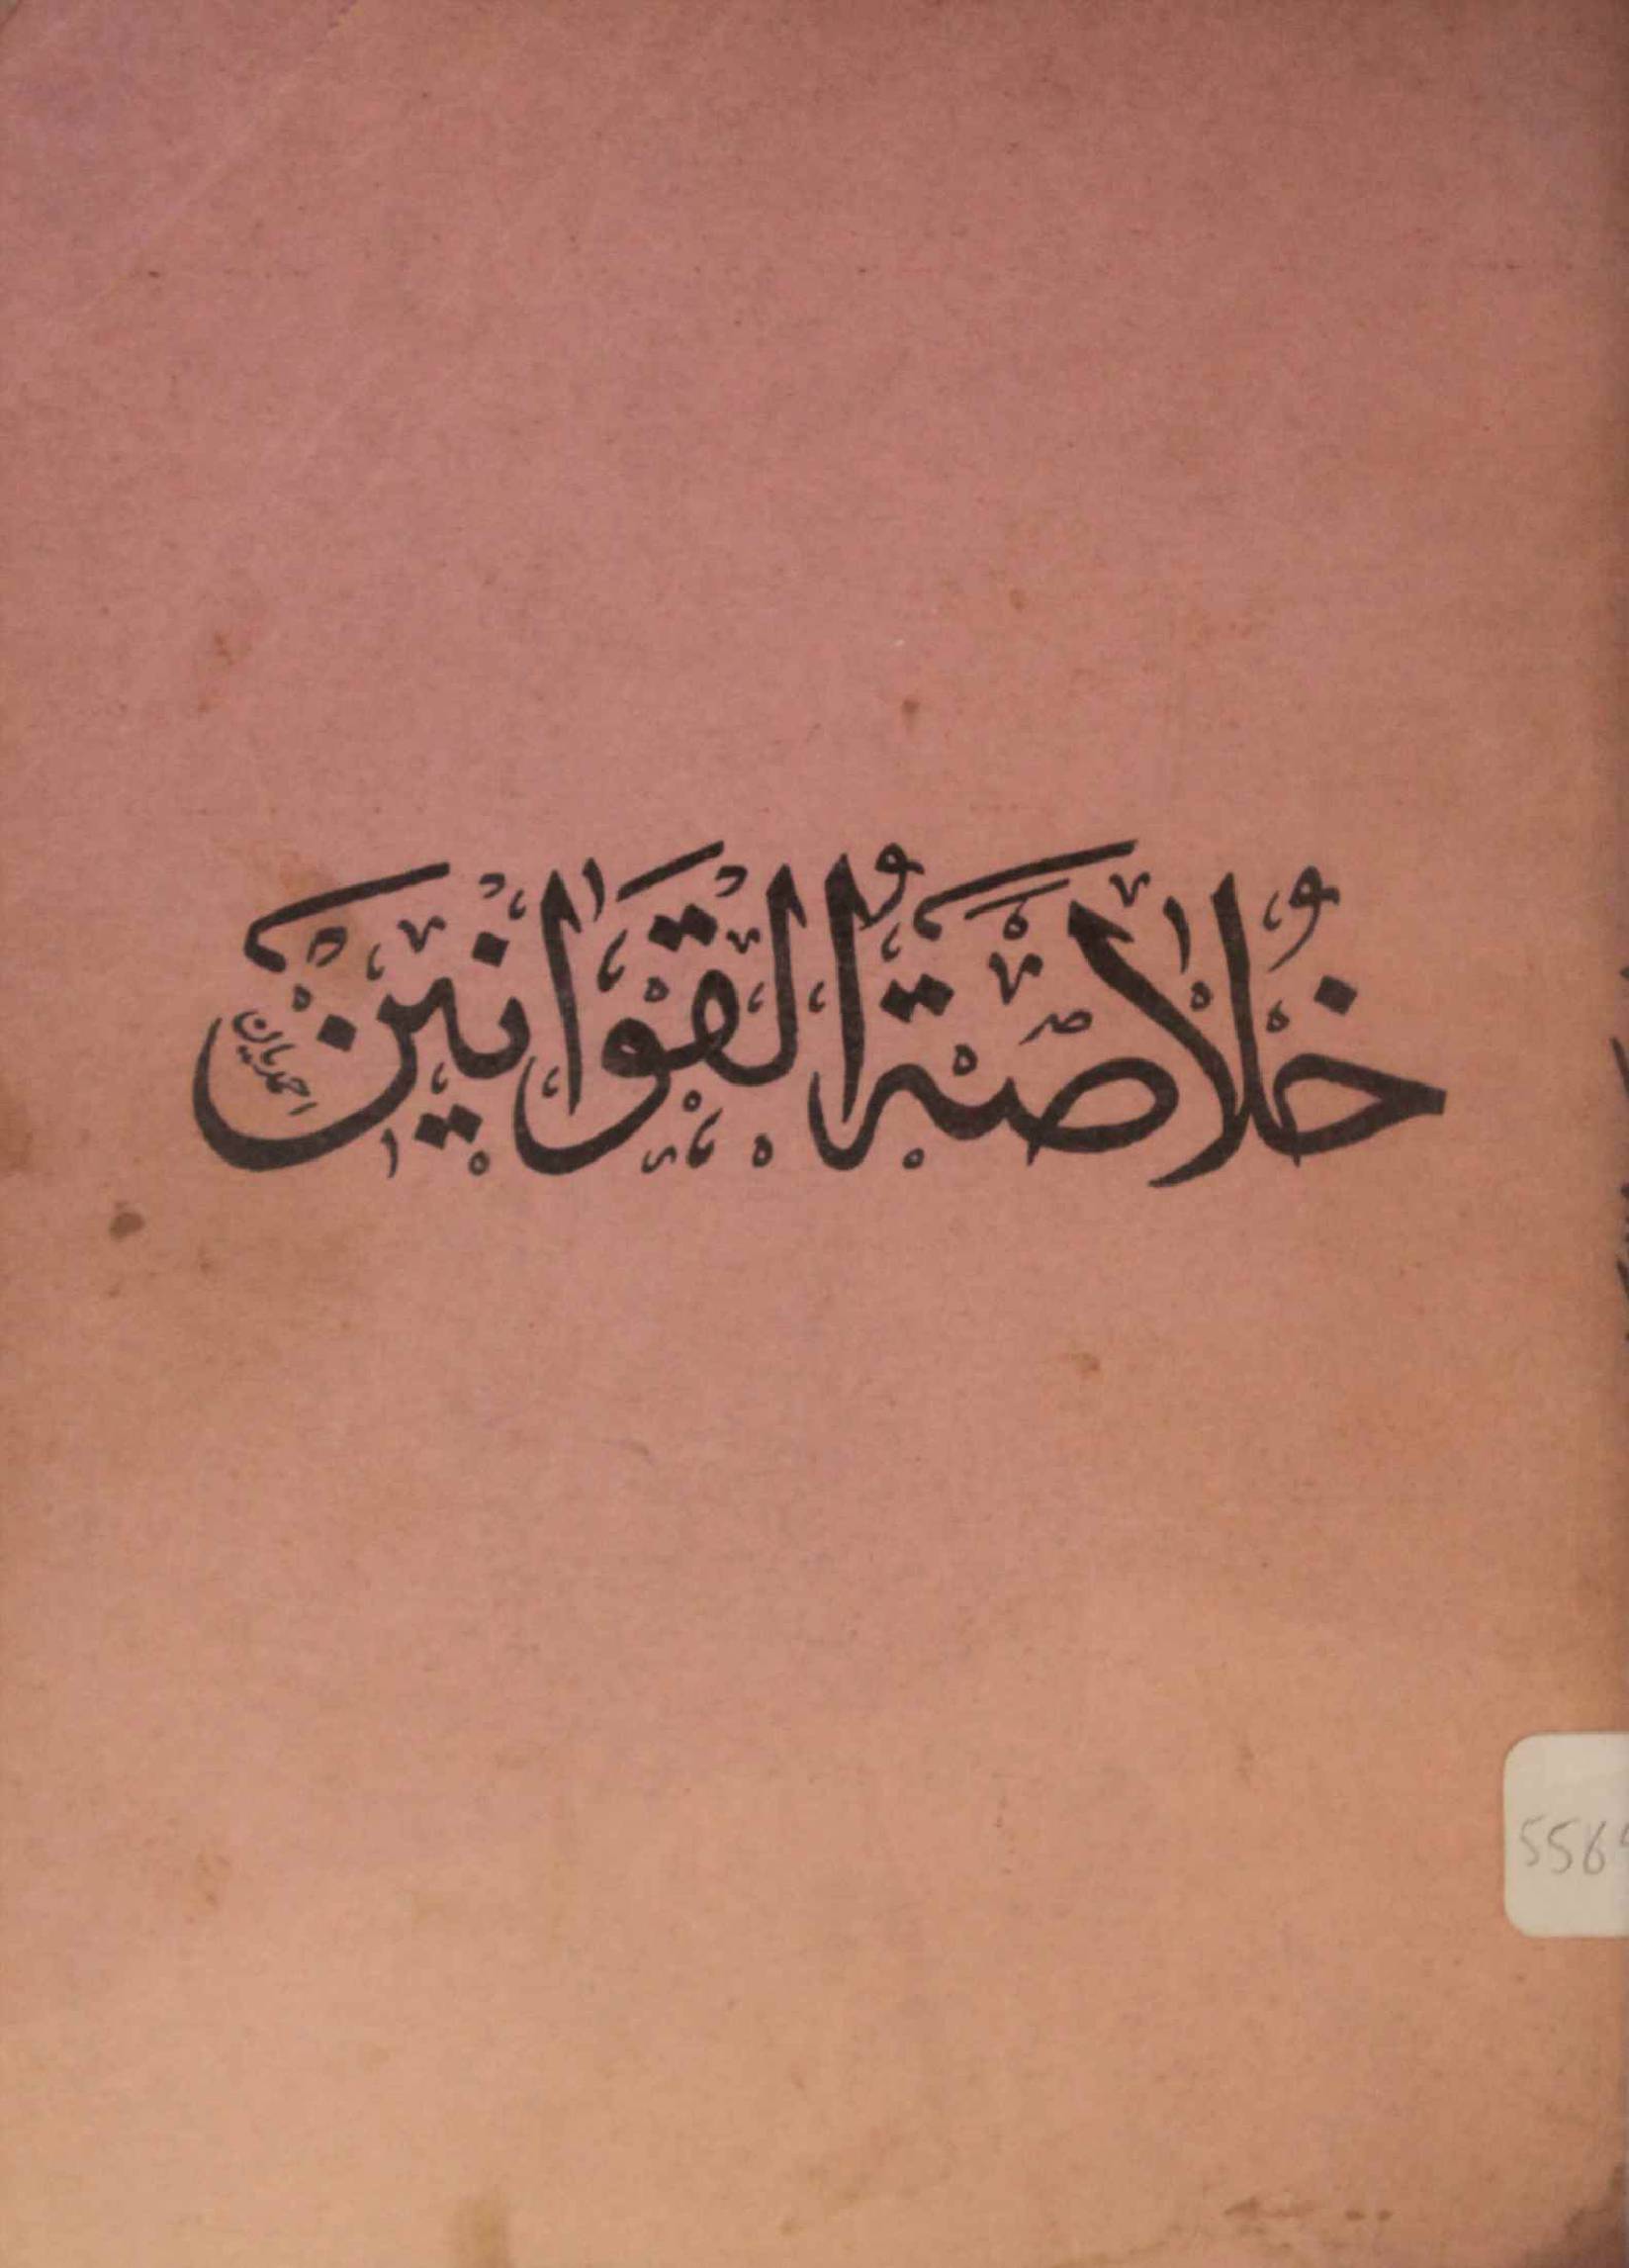 خُلَاصَةُ الْقَوَانِينَ
احمد یاران
556